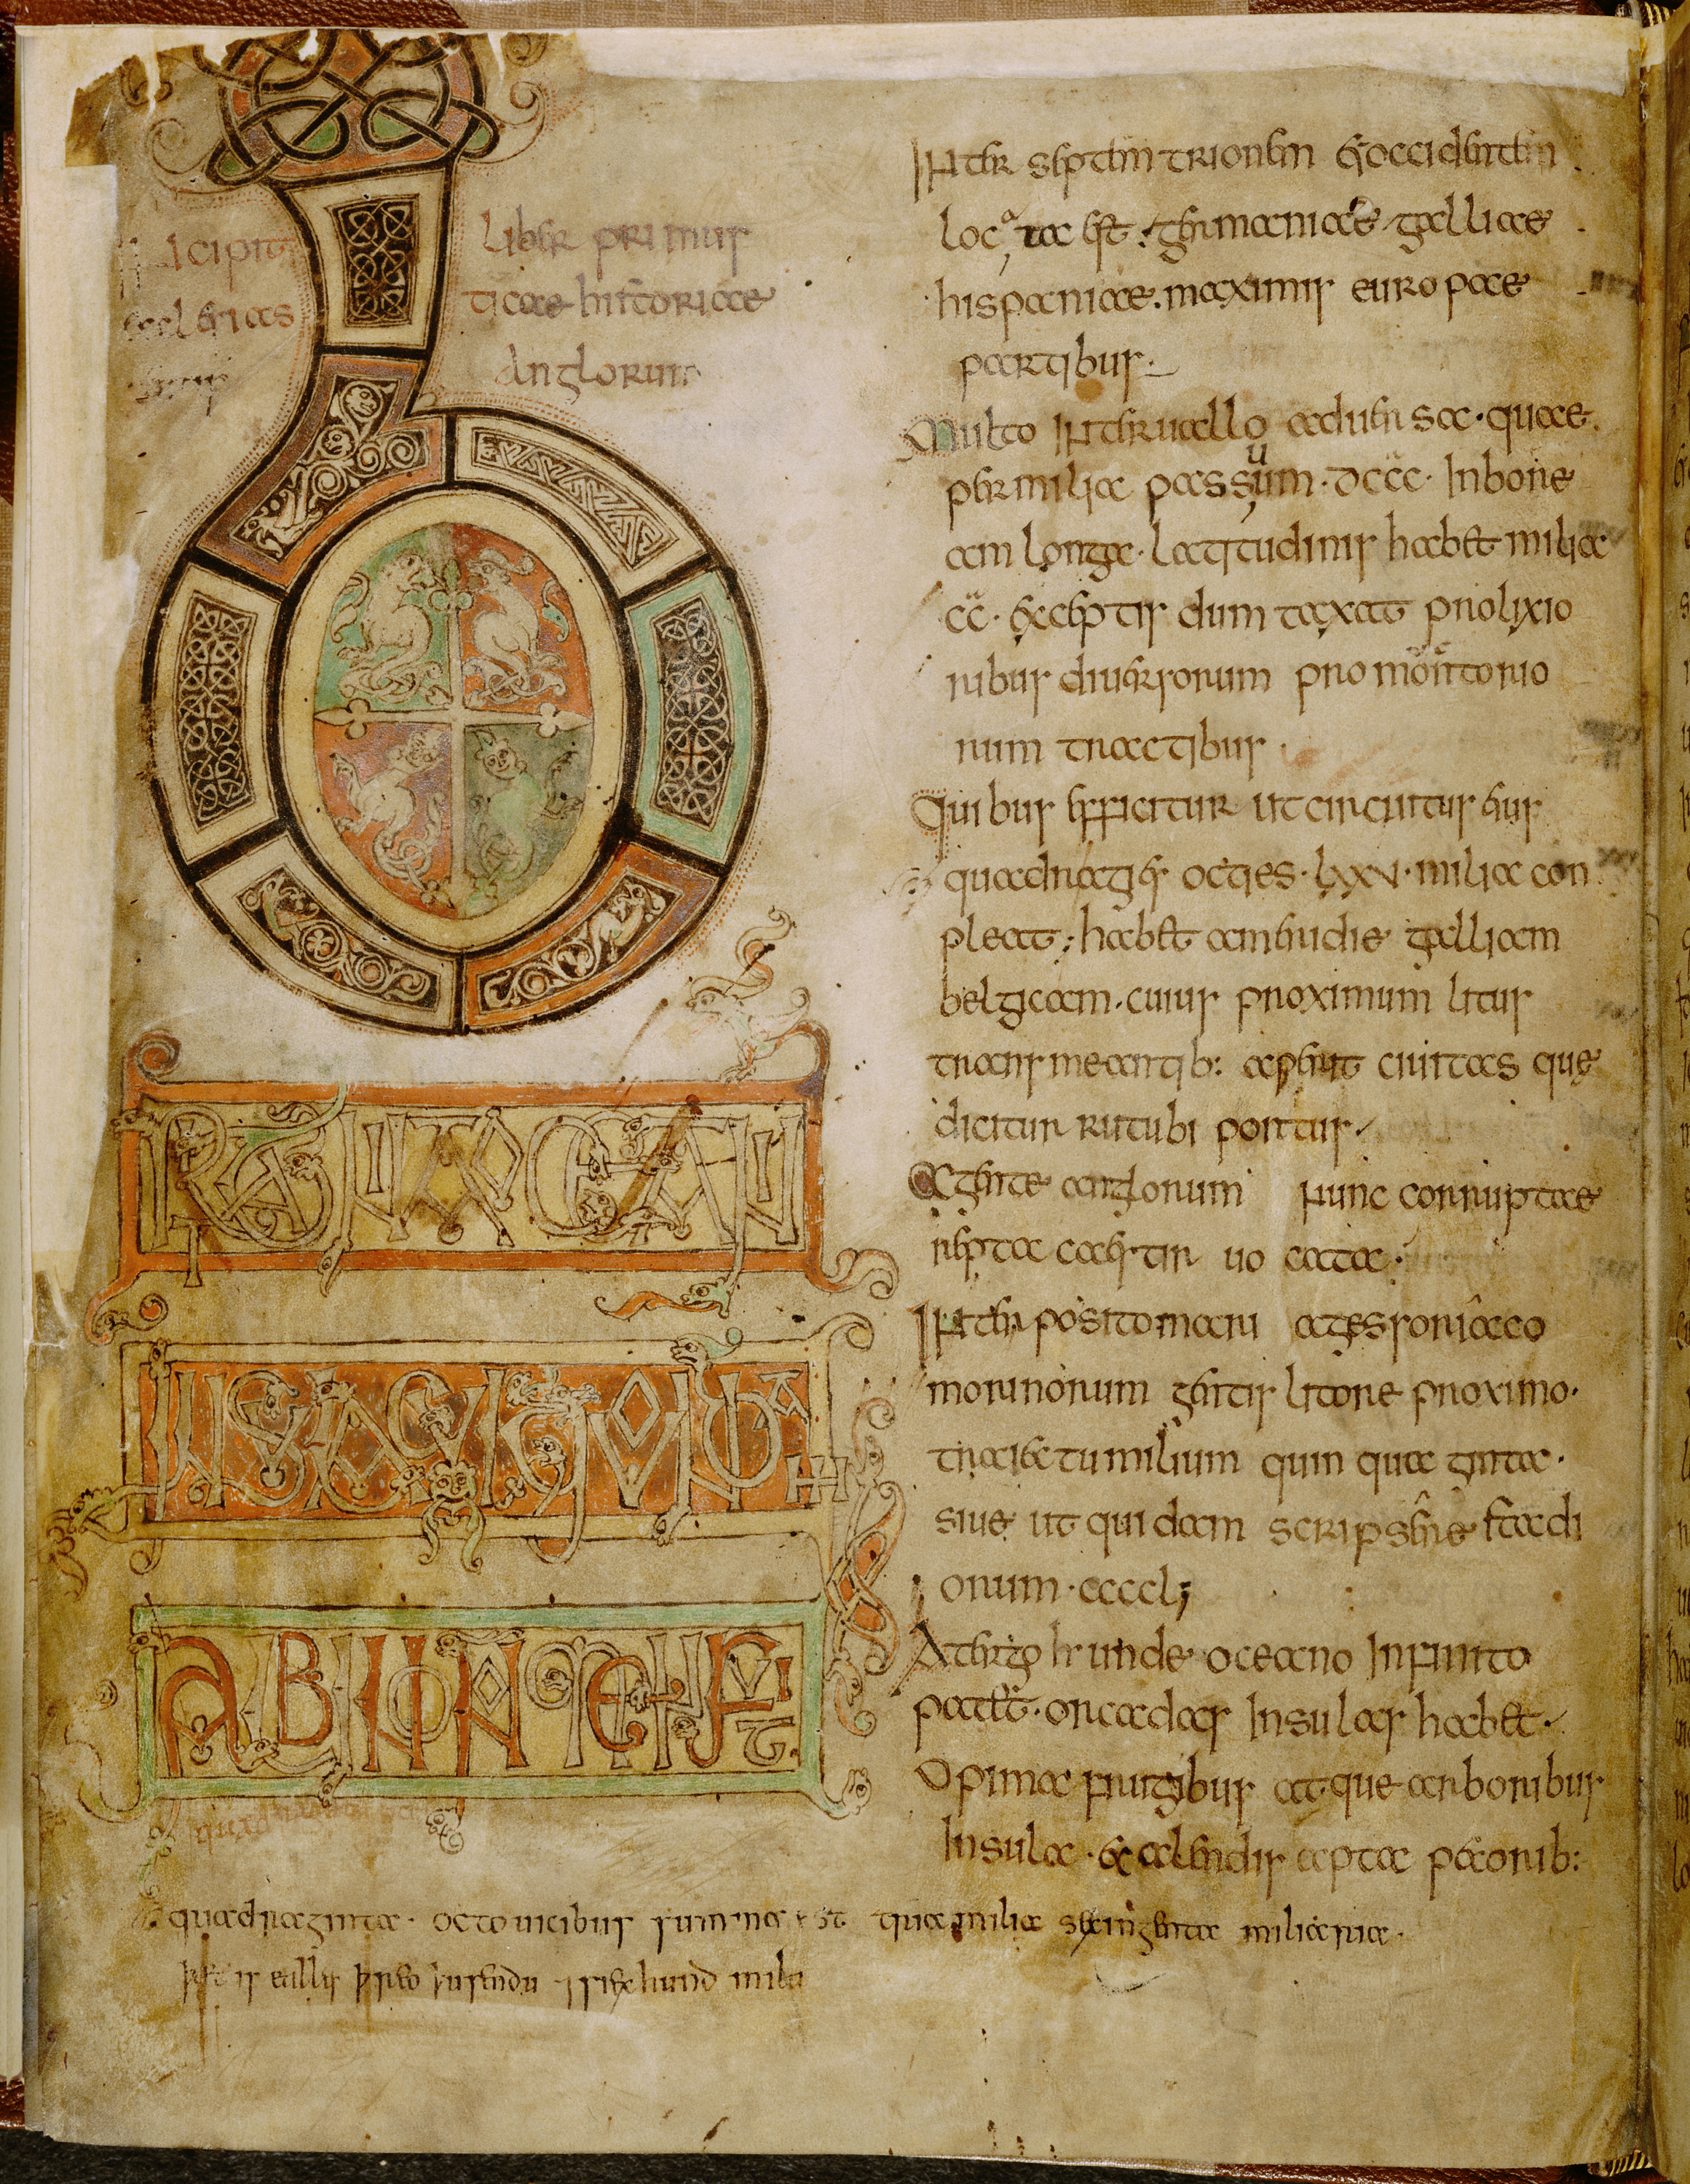 Incipit liber primus
aeclesiasticae historiae
gentis Anglorum
BRITTANIA OCEANI
INSULA CUI QUONDA
ALBION NOMEN FUIT
Inter septemtrionem & occidentem
locata est. germaniae galliae
hispaniae. maximis europae
partibus.
Multo interuallo aduersa. quae
per milia passuum. dccc. In bore
am longa. latitudinis habet milia
cc. exceptis dum taxat prolixio
ribus diuersorum promontorio
rum tractibus
Quibus efficitur ut circuitus eius
quadragies octies. lxxv. milia con
pleat; habet ameridie galliam
belgicam. cuius proximum litus
transmeantib: aperit ciuitas quę
dicitur rutubi portus.
A gente anglorum nunc corruptae
reptacaestir uocata.
Interposito mari agessoriaco
morinorum gentis litore proximo.
traiectu milium quinquaginta.
siue ut quidam scripsere stadi
orum. ccccl;
A tergo hr unde oceano Infinito
patet. orcadas Insulas habet.
Opima frugibus atque arboribus
Insula. & alendis apta pecorib:
quadraginta. octo uicibus summa est tria milia sexingenta miliaria.
þæt is ealles þreo þusendu ⁊ syex hund mila